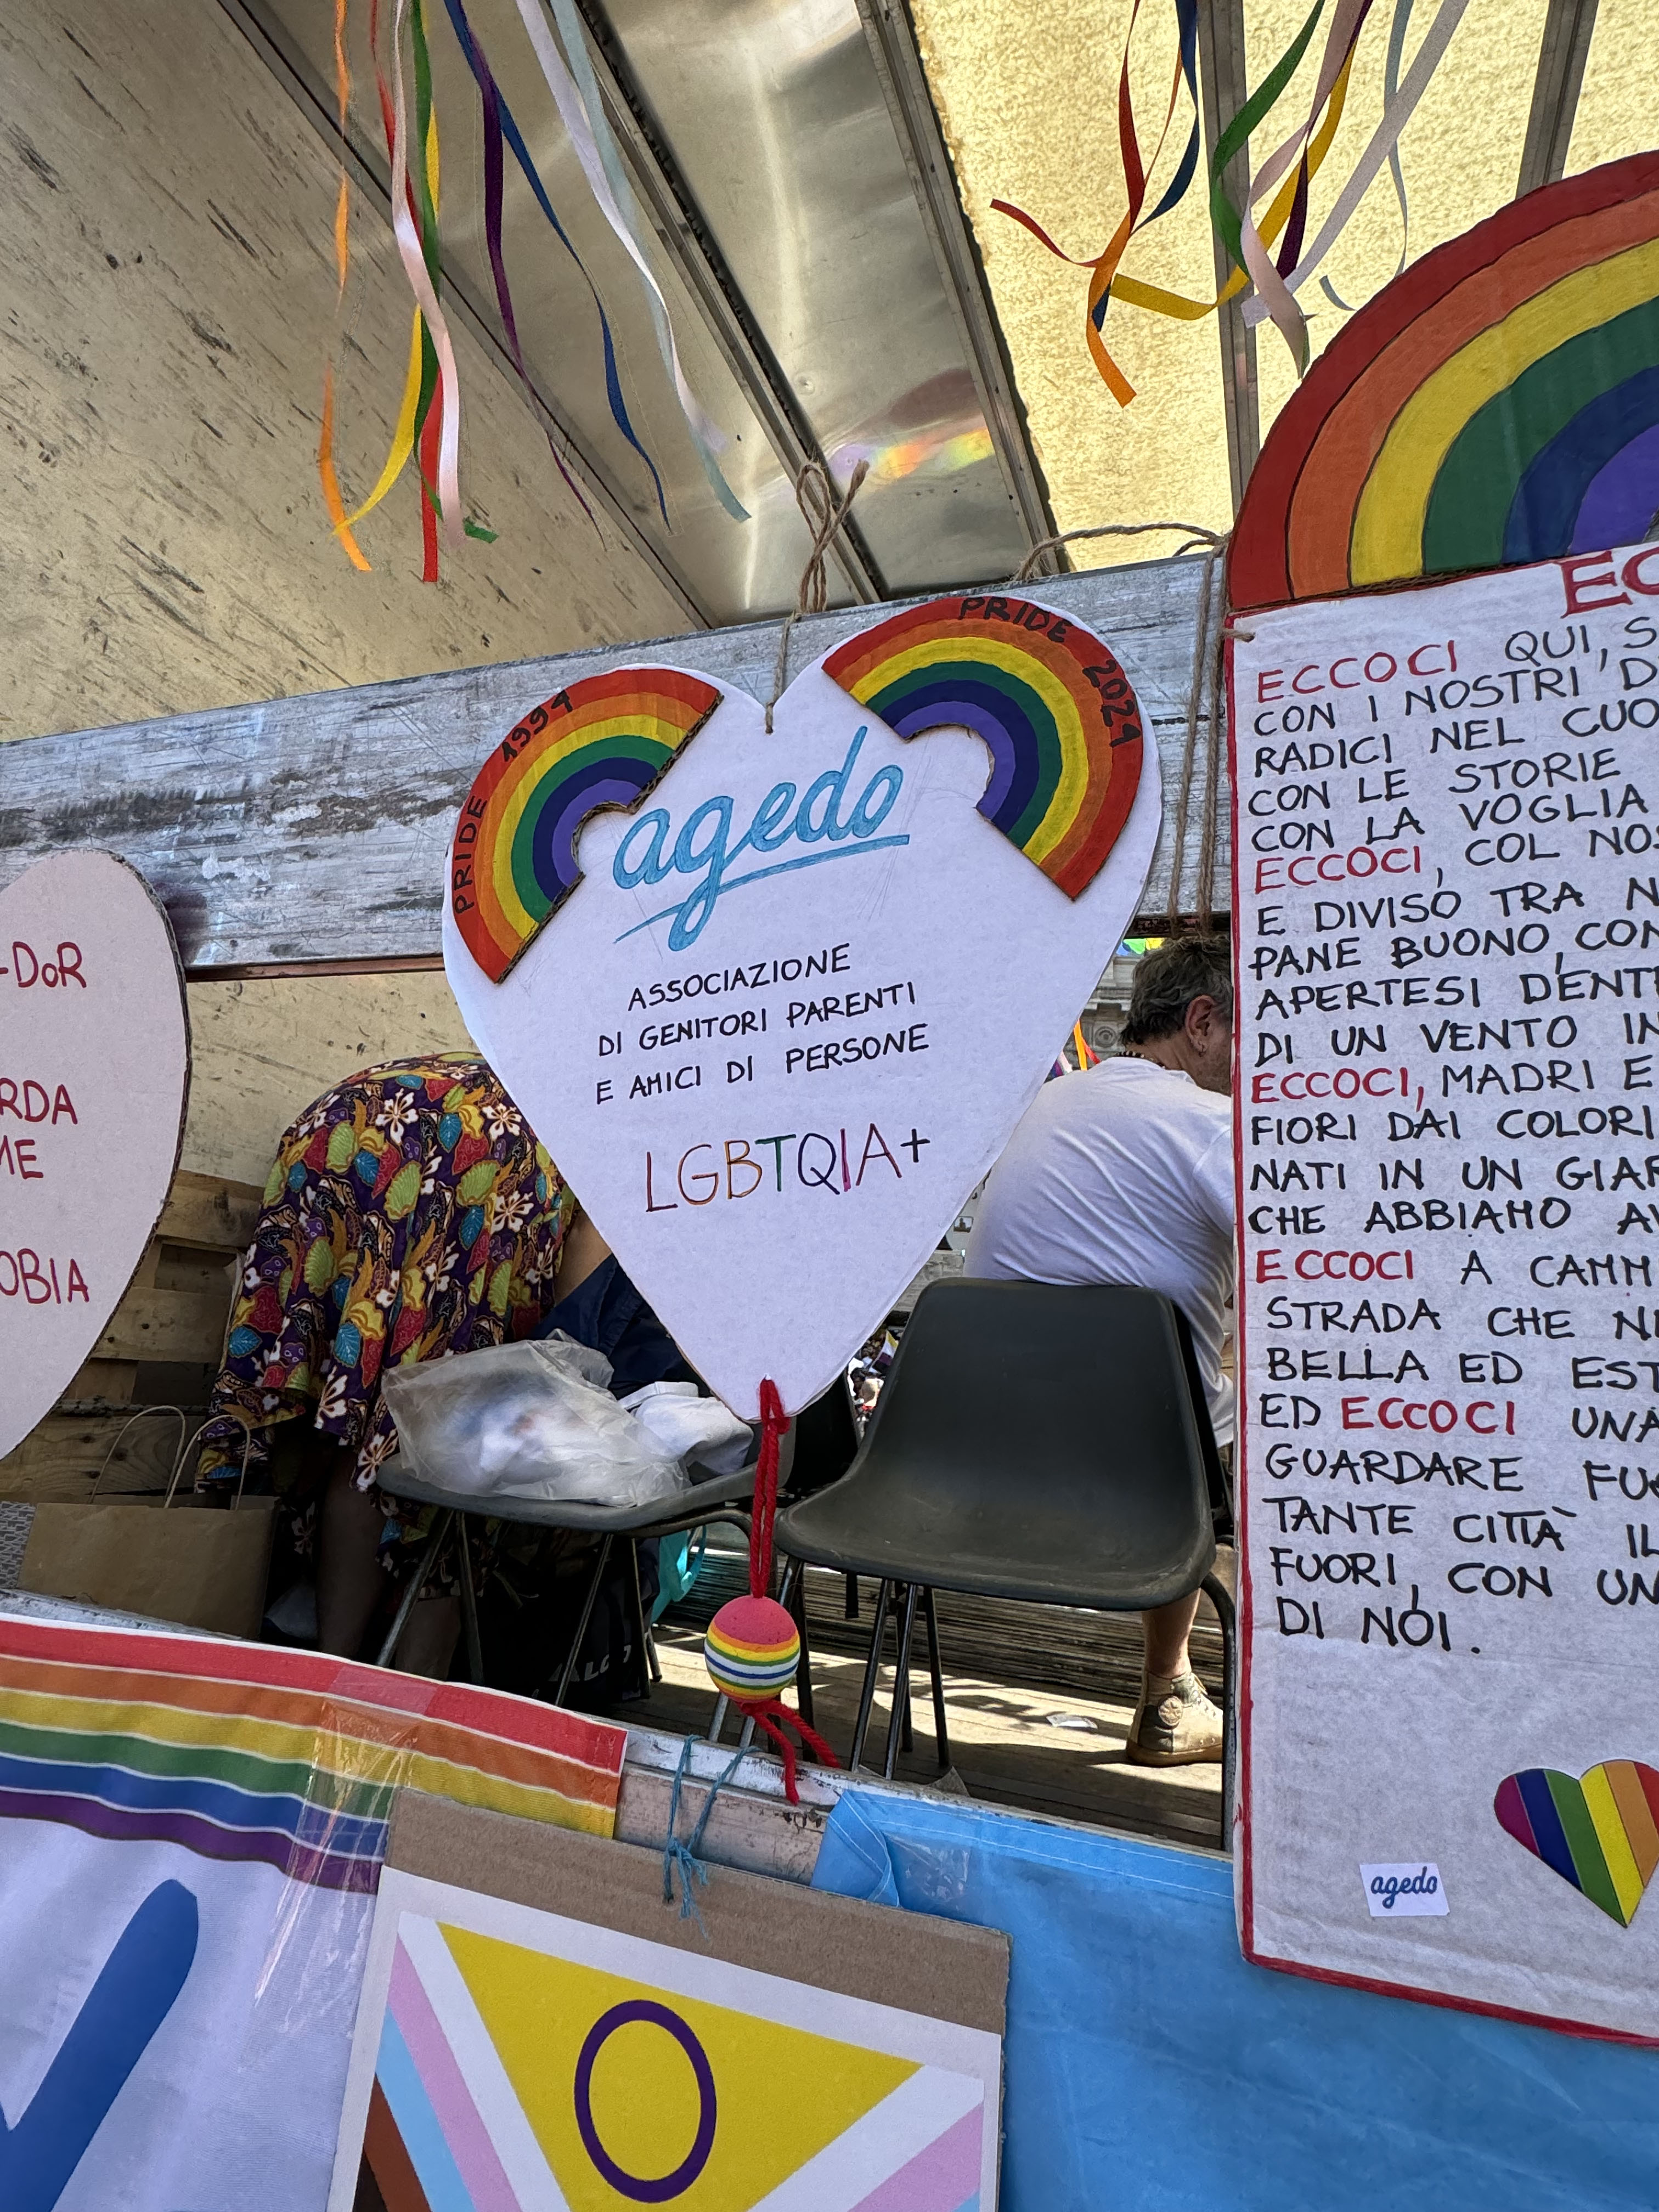 -DOR
RDA
ME
OBIA
PRIDE 1994
PRIDE 2024
agedo
ASSOCIAZIONE
DI GENITORI PARENTI
E AMICI DI PERSONE
LGBTQIA+
EC
ECCOCI QUI, S
CON I NOSTRI D
RADICI NEL CUO
CON LE STORIE
CON LA VOGLIA
ECCOCI, COL NOS
E DIVISO TRA N
PANE BUONO, CON
APERTESI DENT
DI UN VENTO IN
ECCOCI, MADRI E
FIORI DAI COLORI
NATI IN UN GIAR
CHE ABBIAMO AV
ECCOCI A CAMM
STRADA CHE NE
BELLA ED EST
ED ECCOCI UNA
GUARDARE FUO
TANTE CITTÀ IL
FUORI, CON UN
DI NOI.
agedo